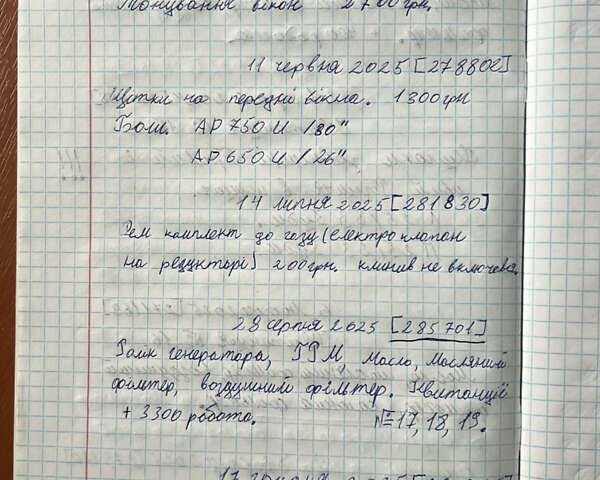 Тонування вікон 2700грн.
11 червня 2025 [278802]
Щітки на передні вікна. 1300грн
Бош. AP 750 U /30"
AP 650 U /26"
14 липня 2025 [281830]
Рем комплект до газу (електроклапан
на редукторі) 200грн. клинив не включався.
28 серпня 2025 [285701]
Ролик генератора, ГРМ, масло, масляний
фільтер, воздушний фільтер. Квитанції
+ 3300 робота. №17, 18, 19.